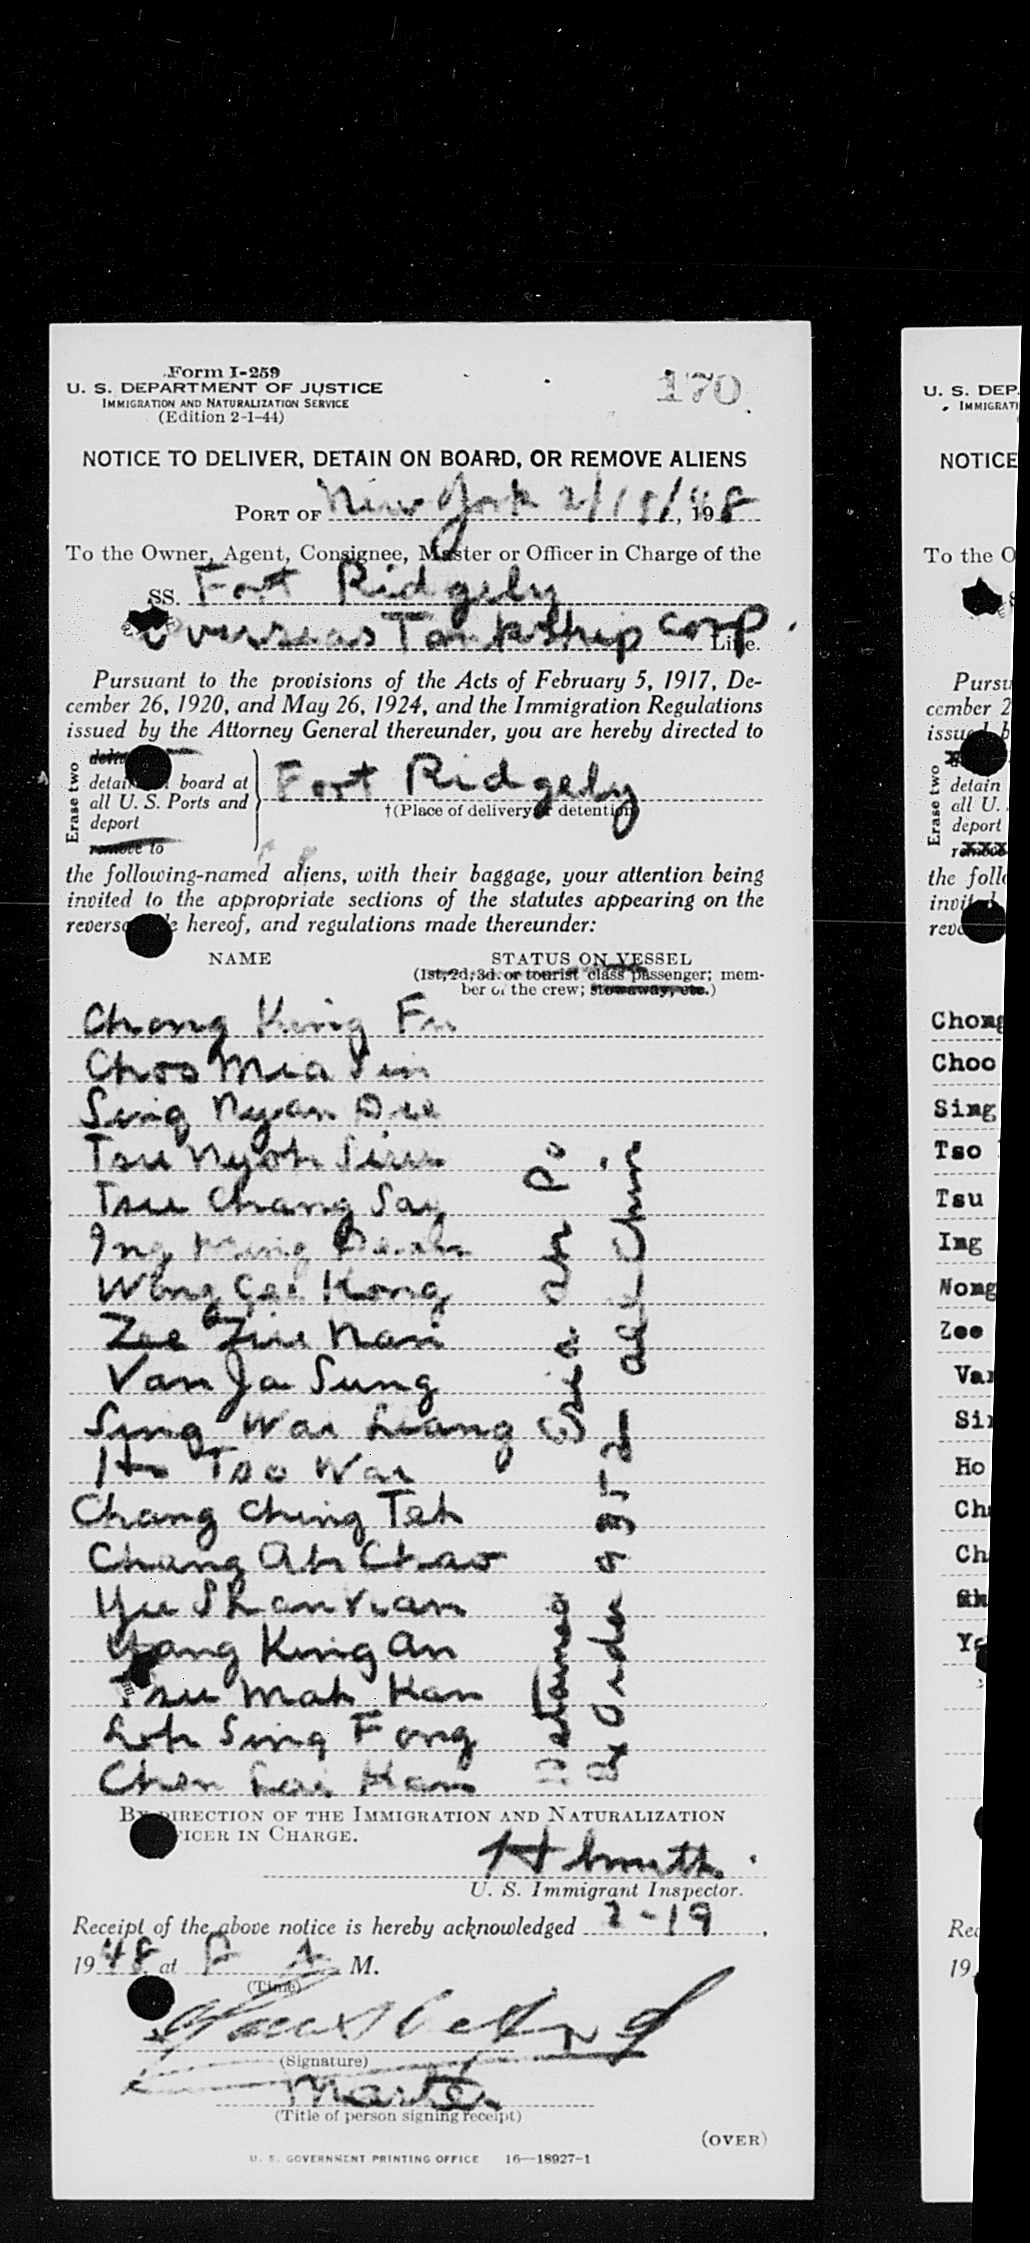 Form I-259
U. S. DEPARTMENT OF JUSTICE
IMMIGRATION AND NATURALIZATION SERVICE
(Edition 2-1-44)
170
NOTICE TO DELIVER, DETAIN ON BOARD, OR REMOVE ALIENS
PORT OF New York 2/19/, 1948
To the Owner, Agent, Consignee, Master or Officer in Charge of the
SS. Fort Ridgely
Overseas Tankship Corp. Line.
Pursuant to the provisions of the Acts of February 5, 1917, De-
cember 26, 1920, and May 26, 1924, and the Immigration Regulations
issued by the Attorney General thereunder, you are hereby directed to
Erase two
detain board at
all U. S. Ports and
deport
remove to
Fort Ridgely
†(Place of delivery or detention)
the following-named aliens, with their baggage, your attention being
invited to the appropriate sections of the statutes appearing on the
reverse hereof, and regulations made thereunder:
NAME
STATUS ON VESSEL
(1st, 2d, 3d. or tourist class passenger; mem-
ber of the crew; stowaway, etc.)
Chong King Fu
Choo Mia Sin
Sing Nyan Dee
Tsu Nyoh
Tsu Chang Say
Ing
Wong Kong
Zee Nan
Van Ja Sung
Sing Wai Liang
Ho Tso Wai
Chang Ching Teh
Chang Ah Chao
Yu Shan
Yang King An
Tsu Mah Kan
Loh Sing Fong
Chen Kan
BY DIRECTION OF THE IMMIGRATION AND NATURALIZATION
OFFICER IN CHARGE.
H Smith
U. S. Immigrant Inspector.
Receipt of the above notice is hereby acknowledged 2-19,
1948 at A M.
(Time)
(Signature)
Master
(Title of person signing receipt)
(OVER)
U. S. GOVERNMENT PRINTING OFFICE 16—18927-1
U. S. DEP
IMMIGRATI
NOTICE
To the O
Pursu
cember 2
Erase two
detain
all U.
deport
the foll
Chong
Choo
Sing
Tso
Tsu
Ing
Wong
Zee
Van
Ho
Rec
19